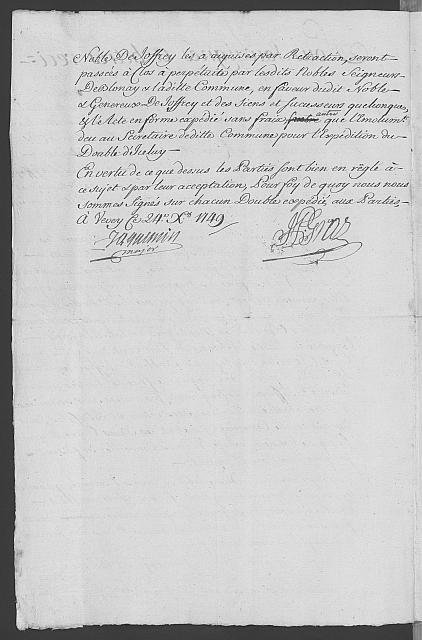 Noble De Joffrey les a aquises par Retraction, seront
passées à Clos a perpetuité par lesdits Nobles Seigneurs
De Blonay & ladite Commune, en faveur dudit Noble
& Genereux De Joffrey et des Siens et successeurs quelconques,
& l'Acte en forme expedié sans frais autre que l'Emolumt
deu au Secretaire de ditte Commune pour l'expédition du
Double d'iceluy
En vertu de ce que dessus les Parties sont bien en règle à
ce Sujet & par leur acceptation, Pour foy de quoy nous nous
sommes Signés sur chacun Doubles expédié, aux Parties
A Vevey Ce 24e. Xb 1749
Jaquemin
major